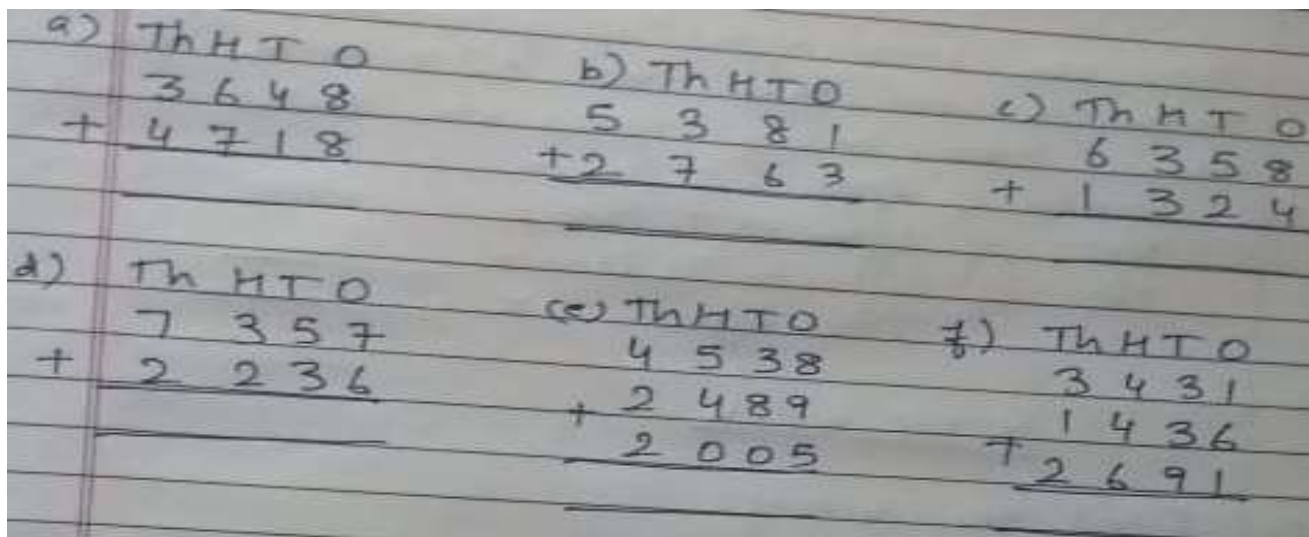 a) Th H T O
3 6 4 8
+ 4 7 1 8
b) Th H T O
5 3 8 1
+2 7 6 3
c) Th H T O
6 3 5 8
+ 1 3 2 4
d) Th H T O
7 3 5 7
+ 2 2 3 6
(e) Th H T O
4 5 3 8
+ 2 4 8 9
2 0 0 5
f) Th H T O
3 4 3 1
1 4 3 6
+ 2 6 9 1